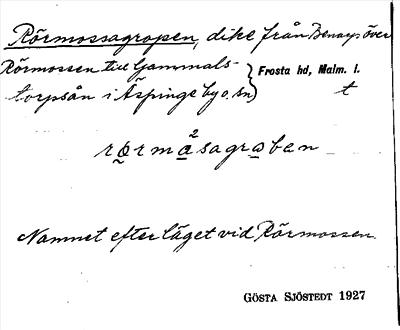 Rörmossagropen, dike från Benarps över
Rörmossen till Gammals-
torpsån i Äspinge by o. sn } Frosta hd, Malm. l.
t
rörmåsagraben
Namnet efter läget vid Rörmossen.
GÖSTA SJÖSTEDT 1927